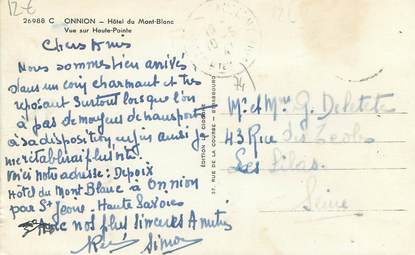 12-€
26988 C ONNION – Hôtel du Mont-Blanc
Vue sur Haute-Pointe
Chers Amis
Nous sommes bien arrivés
dans un coin charmant et très
reposant surtout lorsque l'on
a pas de moyens de transport
à sa disposition enfin ainsi je
me rétablirai plus vite.
Voici notre adresse: Depoix
Hôtel du Mont Blanc à Onnion
par St Jeoire. Haute Savoie
Avec nos plus sincères Amitiés
Simon
74
ÉDITION LA CIGOGNE
37, RUE DE LA COURSE - STRASBOURG
Mr et Mme G. Deletete
43 Rue des Ecoles
Les Lilas.
Seine